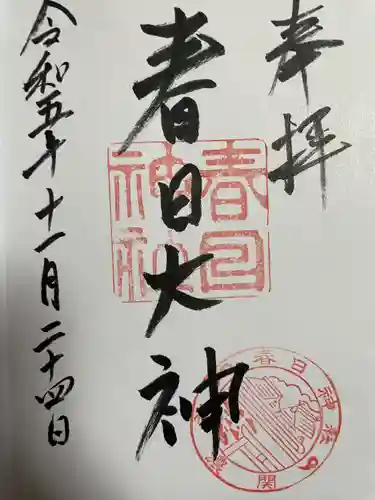 奉拝
春日大神
春日
神社
令和五年十一月二十四日
春日神社
関